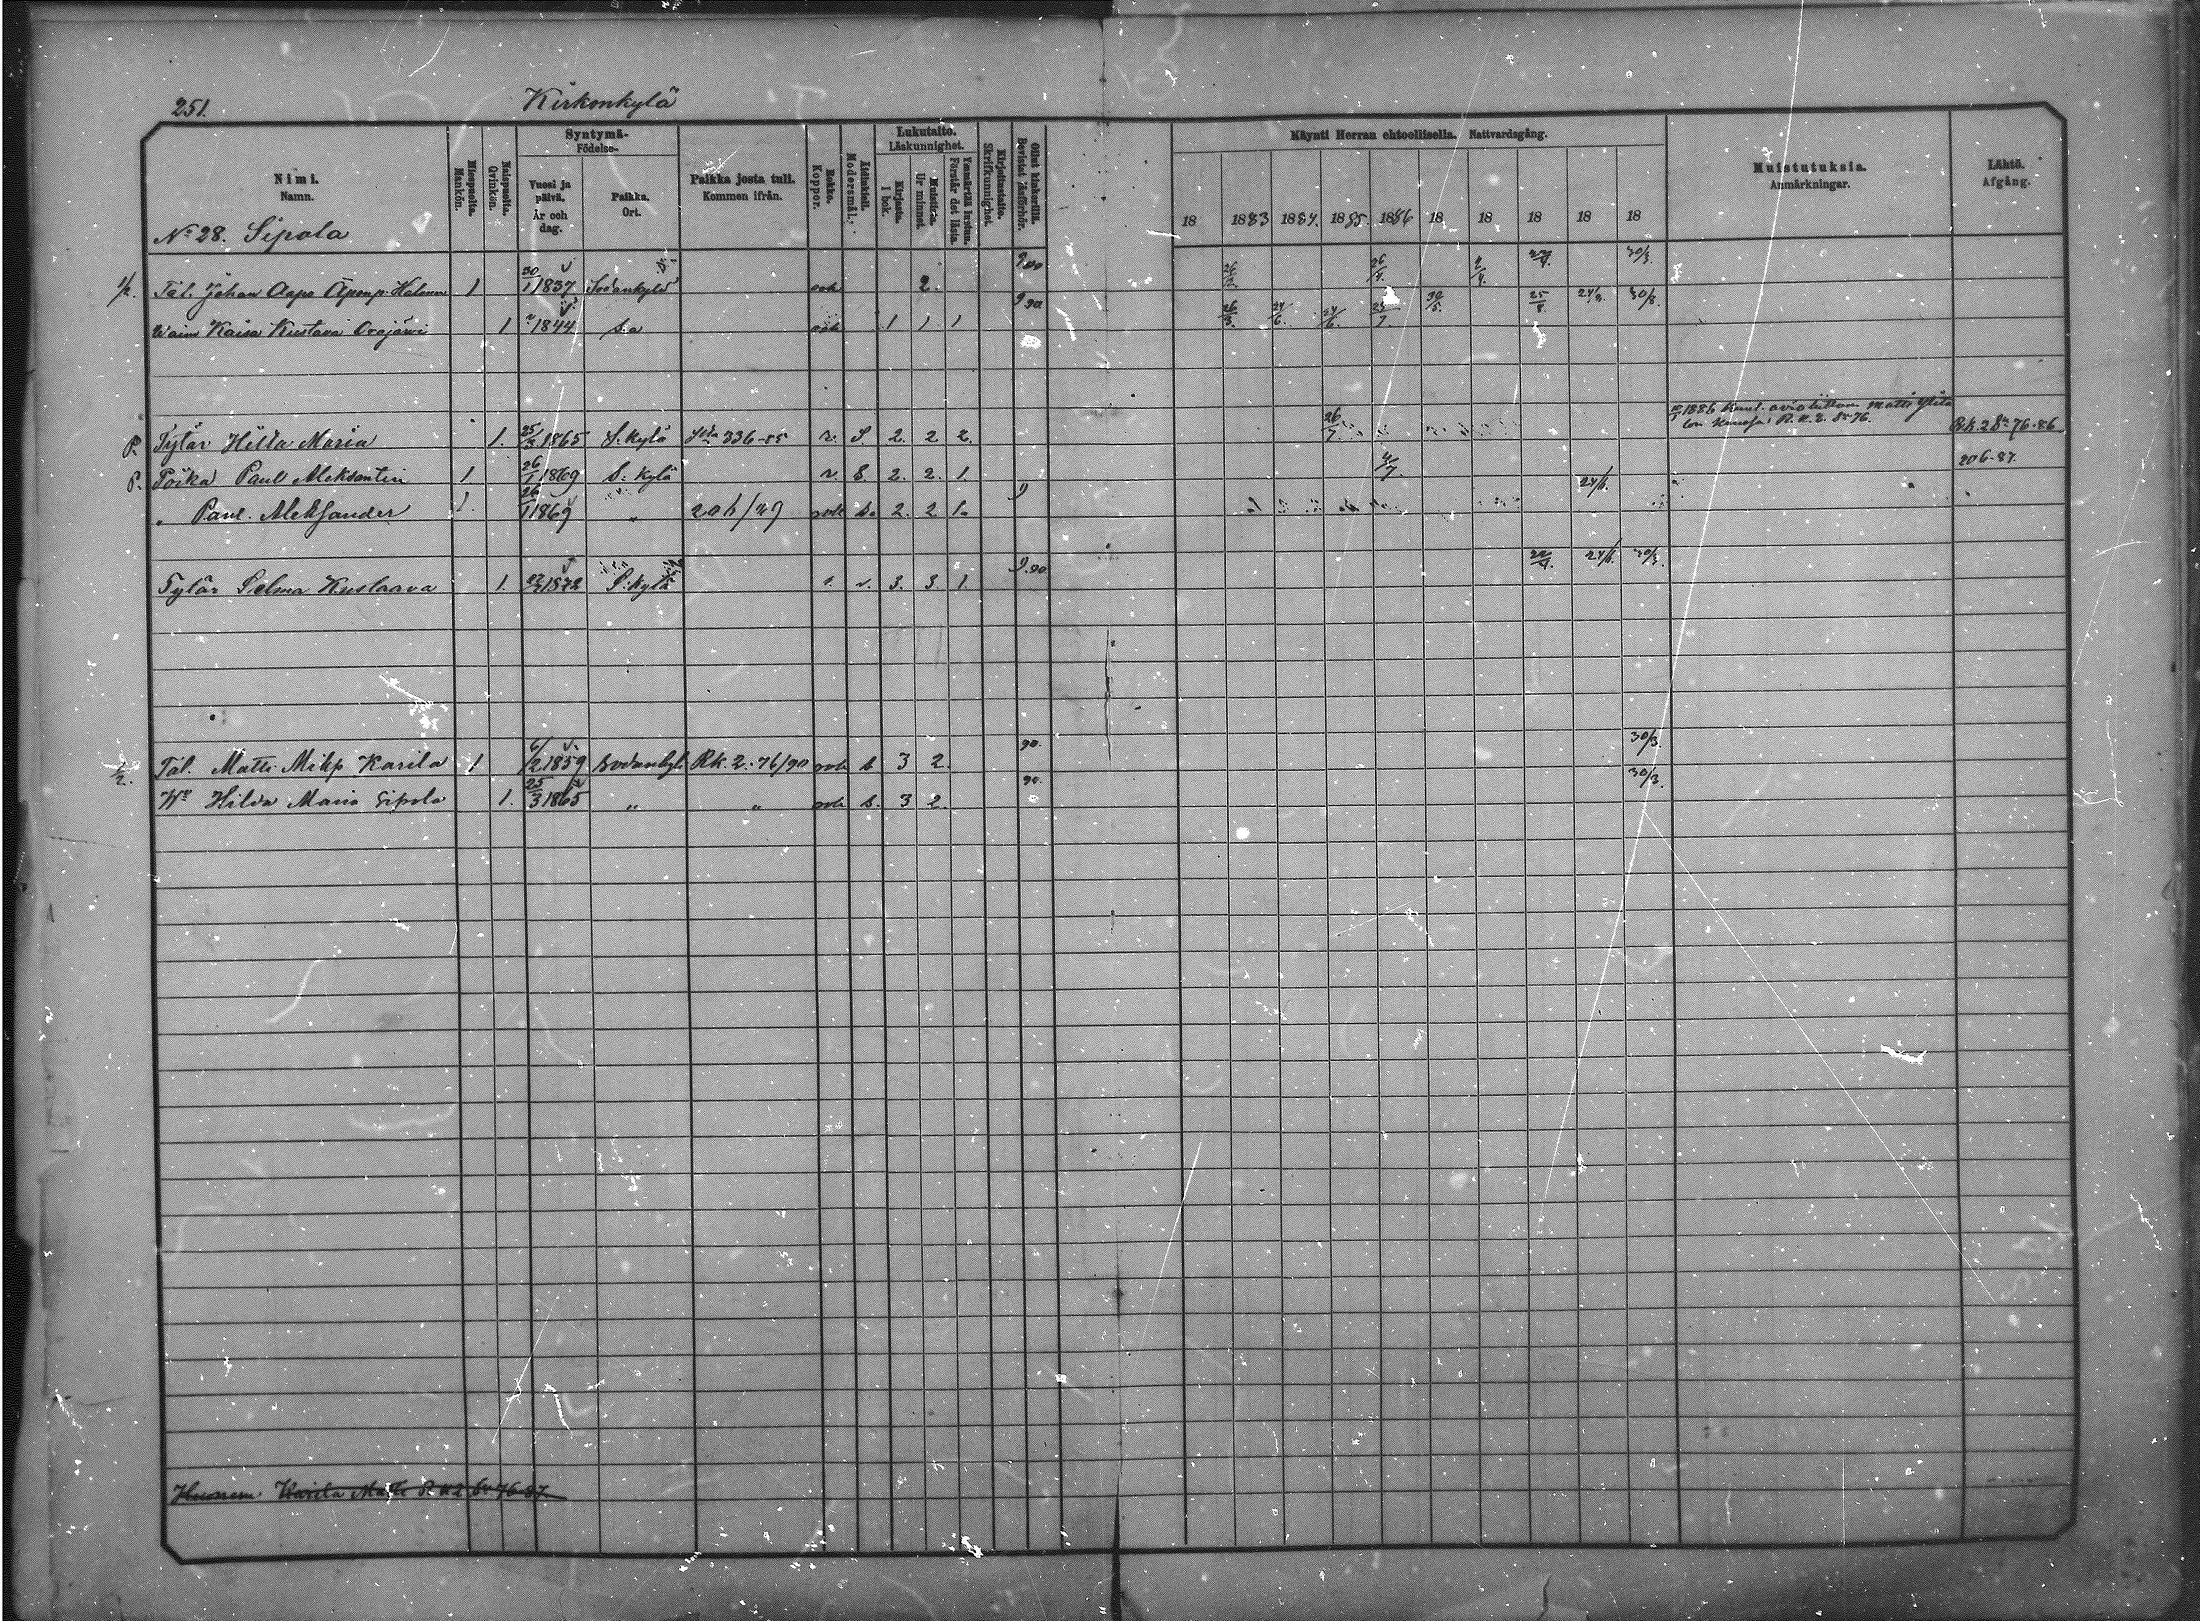 251.
Kirkonkylä
Nimi.
Namn.
Miespuolia.
Mankön.
Naispuolia.
Qvinkön.
Syntymä-
Födelse-
Vuosi ja
päivä.
År och
dag.
Paikka.
Ort.
Paikka josta tuli.
Kommen ifrån.
Rokko.
Koppor.
Äitinkieli.
Modersmål.
Lukutaito.
Läskunnighet.
Kirjasta.
I bok.
Ulkoa.
Ur minnet
Förstår det lästa.
Kirjoitustaito.
Skrifkunnighet.
Käynti Herran ehtoollisella. Nattvardsgång.
18 1883 1884. 1885. 1886 18 18 18 18 18
Muistutuksia.
Anmärkningar.
Lähtö.
Afgång.
No 28. Sipola
1/2 Tal. Johan Aape Apenp. 1 30/1 1837 Sodankylä rok 2. 900 26/3. 2/4. 30/3
Waim Kaisa Kustava Orajärvi 1 1844 S:a rok 1 1 1 9 90 26/3. 24/6. 24/6. 25/7. 30/5. 25/8. 24/8. 30/3
P. Tytär Hilda Maria 1. 25/3 1865 S. kylä 336-85 r. S 2. 2. 2. 26/7 1886 Matti R.K. 2. Sv. 76. Rk. 2 Sv 76-86
P. Poika Paul Aleksantin 1 26/1 1869 S. kylä r. S. 2. 2. 1. 4/7. 206-87.
" Paul. Aleksander 1. 26/1 1869 " 206/89 rok S. 2. 2 1. 9 24/8.
Tytär Selma Kustaava 1. 1872 S. kylä r. 3. 3. 1. 9.90 24/8. 30/3.
1/2. Tal. Matti Mikp Karila 1 6/2 1859 Sodankyl. Rk. 2. 76/90 rok S 3 2. 90. 30/3.
Wo Hilda Maria Sipola 1. 25/3 1865 " " rok S. 3 2. 90. 30/3.
Huonem. Karila Matti R K 2 Sv 76-87.